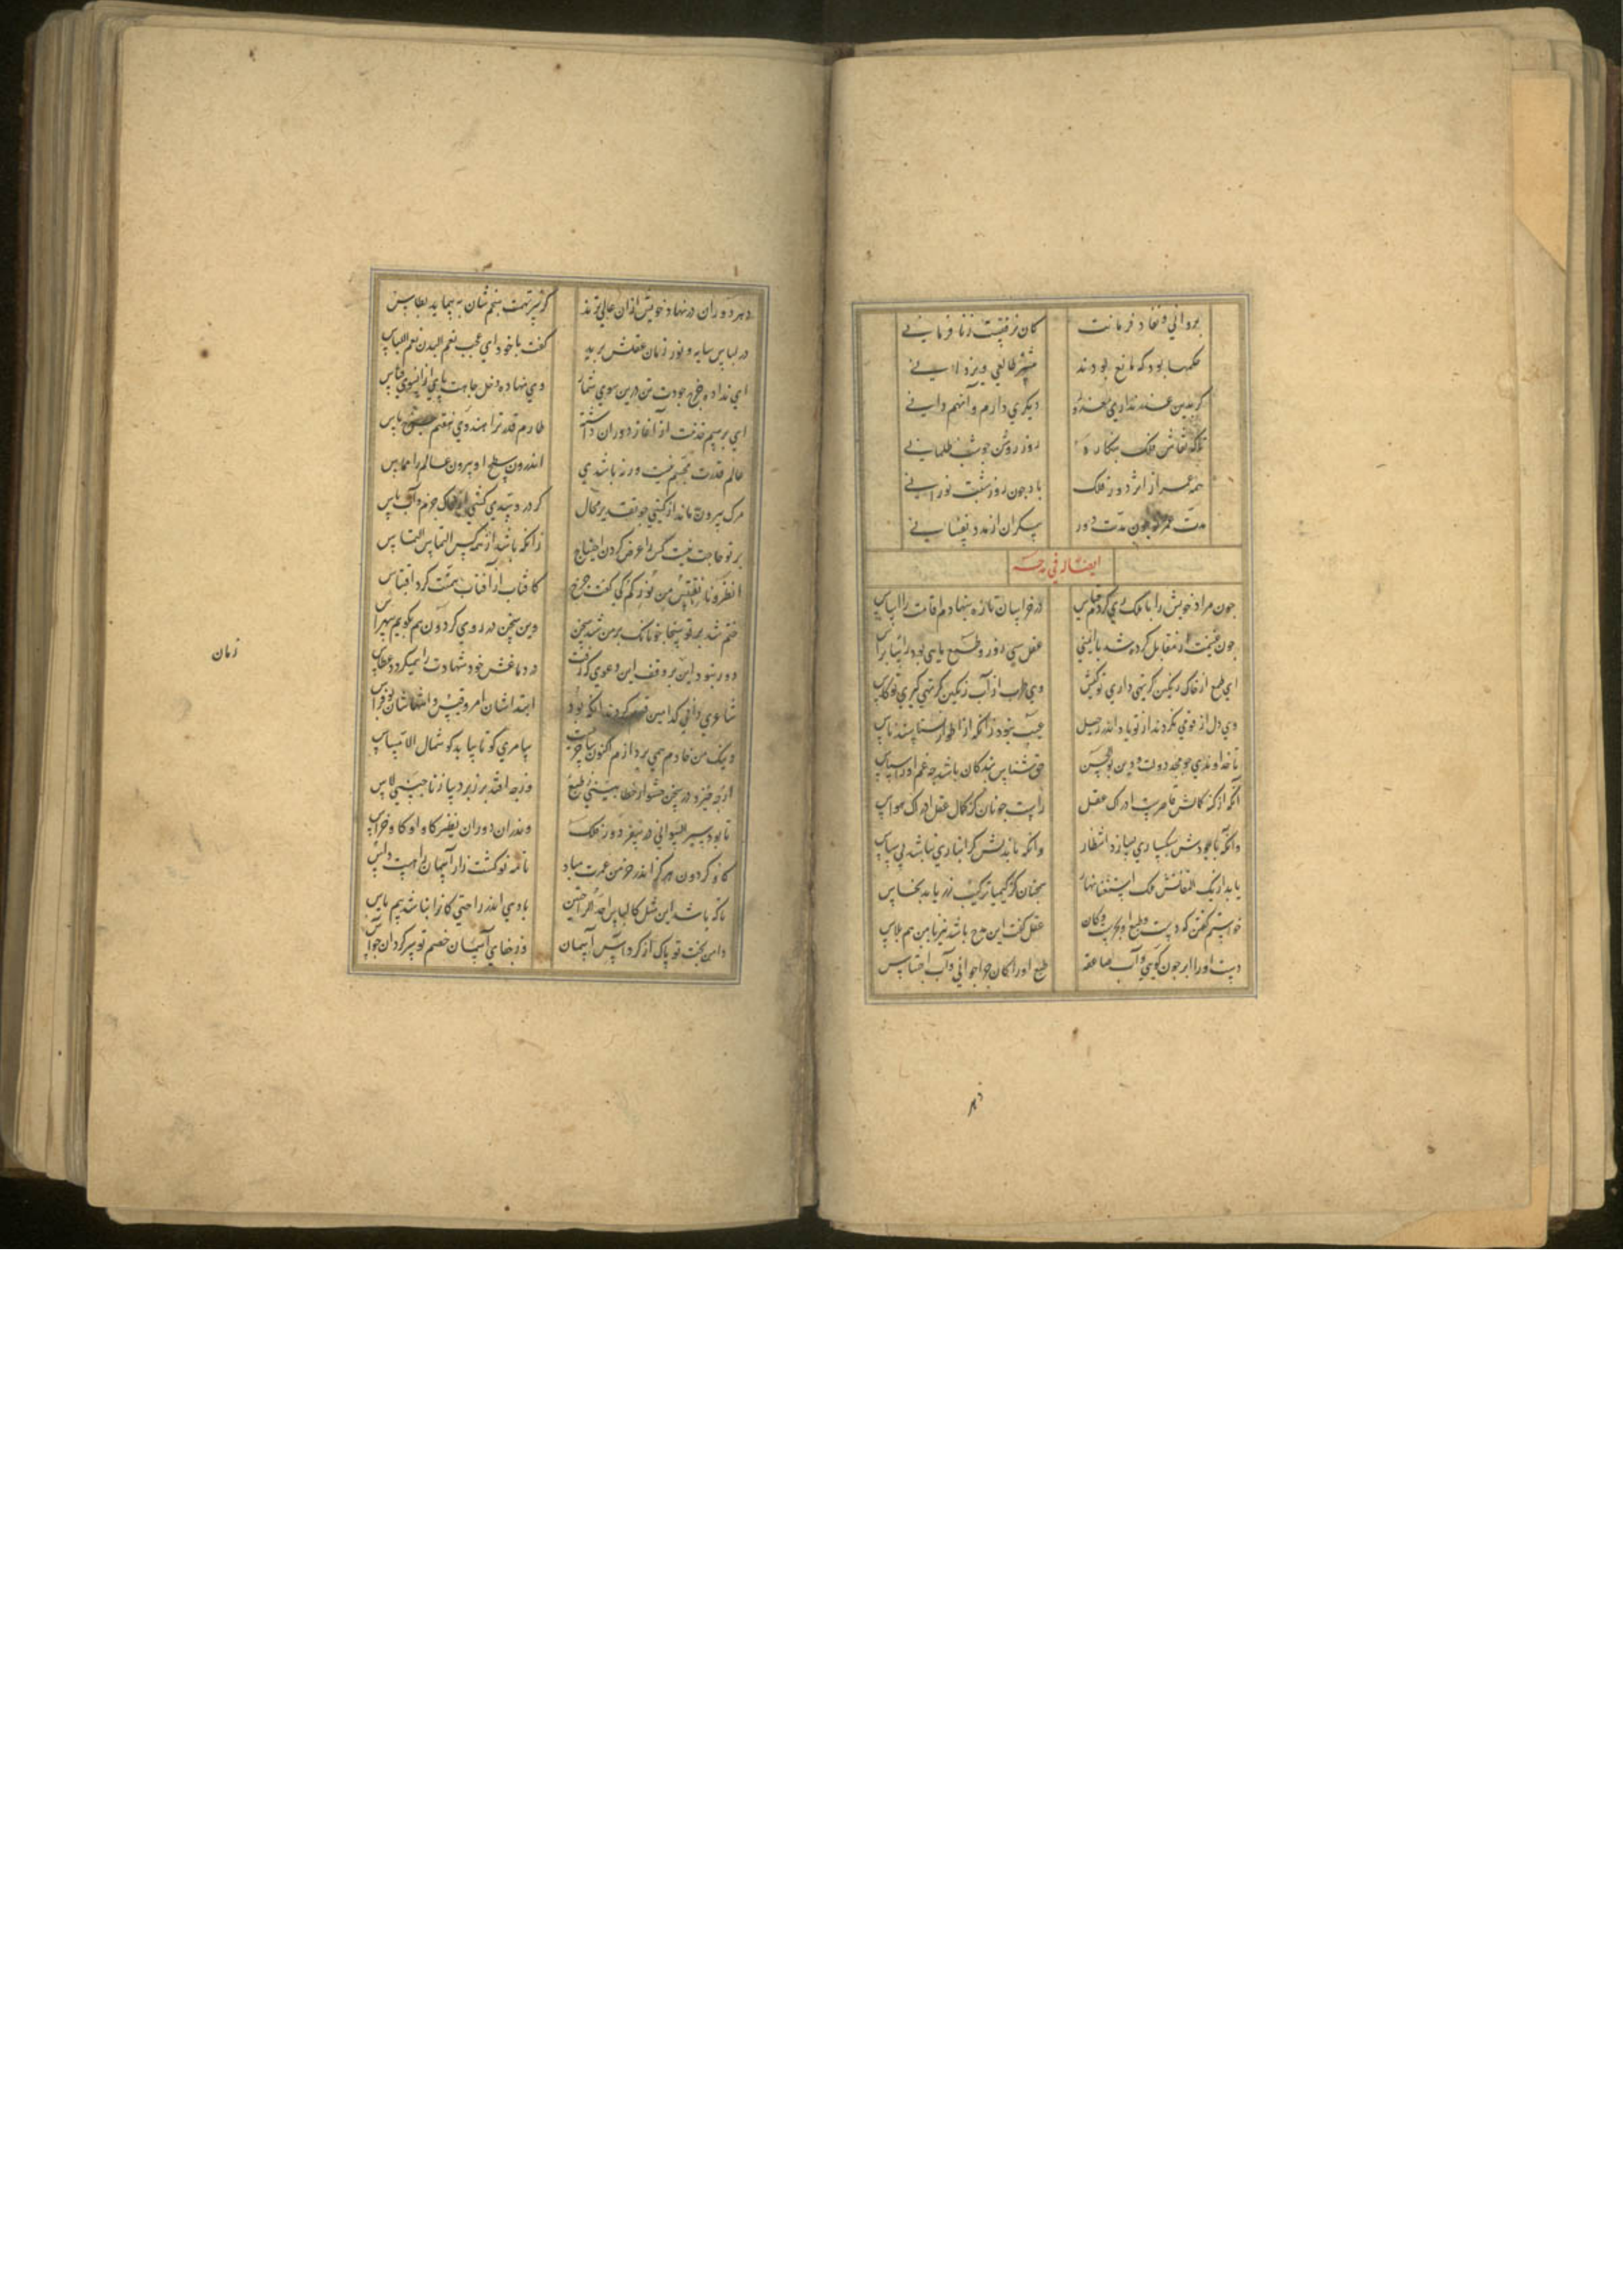 بروانی و نفاد فرمانت کان ز فقیت زنا فرمانی
حکمها بود که مانع بودند
کر بدین عذر نداری معذور دیکری دارم و آنهم دانی
تا که نقاش فلک بنکارد روز روشن چو شب ظلمانی
همه عمر از اثر دور فلک باد چون روز شبت نورانی
مدت عمر تو چون مدت دور بیکران از مدد نفسانی
ایضا فی مدحه
چون مراد خویش را با ملک ری کردم قیاس در خراسان تازه بنهادم اقامت را اساس
چون غنیمت را مقابل کرده شد با ایمنی عقل سی روز و طمع ماهی بود راسا براس
ای طمع از خاک رنکین کر تهی داری تو کیش وی طرب از آب رنکین کر تهی کیری تو کاس
وی دل ار قومی نکردند از تو یاد الله رحیل عیب نبود زانکه از اطوار نسناسند ناس
تا خداوندی چو مجد دولت و دین بوالحسن حق شناس بندکان باشد چه غم او را سپاس
آنکه از کنه کمالش قاصرست ادراک عقل راست چونان کز کمال عقل ادراک حواس
وانکه با جودش سبکساری نیازد انتظار وانکه با بذلش کرانباری نباشد بی سپاس
یابد از یک التفاتش ملک استغنا نیاز همچنان کز کیمیا ترکیب زر یابد نحاس
خواستم کفتن که دست و طبع او بحرست و کان عقل کفت این مدح باشد نیز با من هم پلاس
دست او را ابر چون کویی و آب صاعقه طبع او را کان چرا خوانی و آب احتباس
دهر
دهر و دوران در نهاد خویش از آن عالی ترند کز سر تهمت منجمشان به پیماید بطاس
در لباس سایه و نور زمان عقلش بدید کفت با خود ای عجب نعم البدن نعم اللباس
ای نداده چرخ جودت تن درین سوی شمار وی نهاده دخل جاهت پای از انسوی قیاس
ای برسم خدمت از آغاز دوران داشته طارم قدر ترا هندوی هفتم پاس
عالم قدرت مجسم نیست ورنه باشدی اندرون سطح او بیرون عالم را مماس
مرک بیرون ماند از کیتی چو تقدیر محال کر در و سدی کشی از خاک حزم و آب باس
بر تو حاجت نیست کس را عرض کردن احتیاج زانکه باشد از همه کس التماست التماس
انظرونا نقتبس من نورکم کی کفت چرخ کافتاب از آفتاب همتت کرد اقتباس
ختم شد بر تو سخا چونانک بر من شد سخن وین سخن در روی کردون هم بکویم بیهراس
دور نبود این بر وقف این دعوی کرفت در دماغش خود شهادت را همیکردد عطاس
شاعری دانی کدامین قوم کردند آنکه بود ابتداشان امرو قیس و انتهاشان بو فراس
وینک من خادم همی پردازم اکنون ساحریست سامری کو تا بیابد کوشمال لامساس
از چه خیزد در سخن حشو از خطا بینی طبع وز چه افتد پرز بر دیبا ز ناجنسی لاس
تا بود سیر السوانی در سفر دور فلک وندران دوران نظیر کاو او کاو خراس
کاو کردون هرکز اندر خرمن عمرت مباد تا مه نو کشت زار آسمان را هست داس
تا که باشد این مثل کالیاس احدی الراحتین بادی اندر راحتی کانرا نباشد بیم یاس
دامن بخت تو پاک از کرد آس آسمان وز جفای آسمان خصم تو سرکردان چو آس
زمان